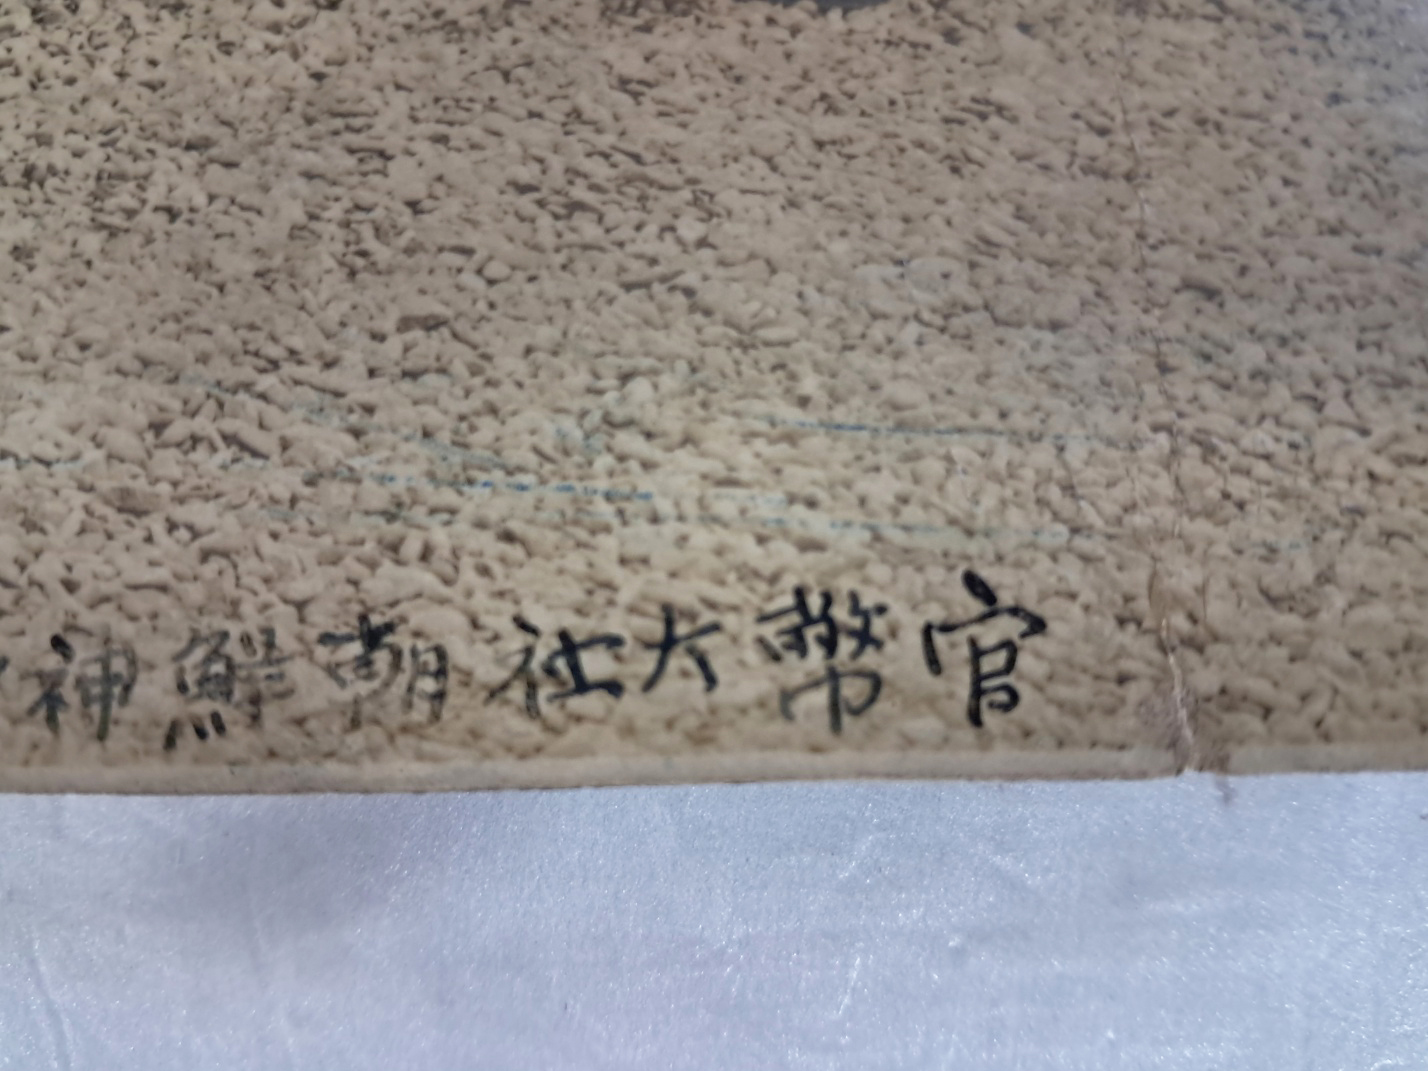 官幣大社朝鮮神